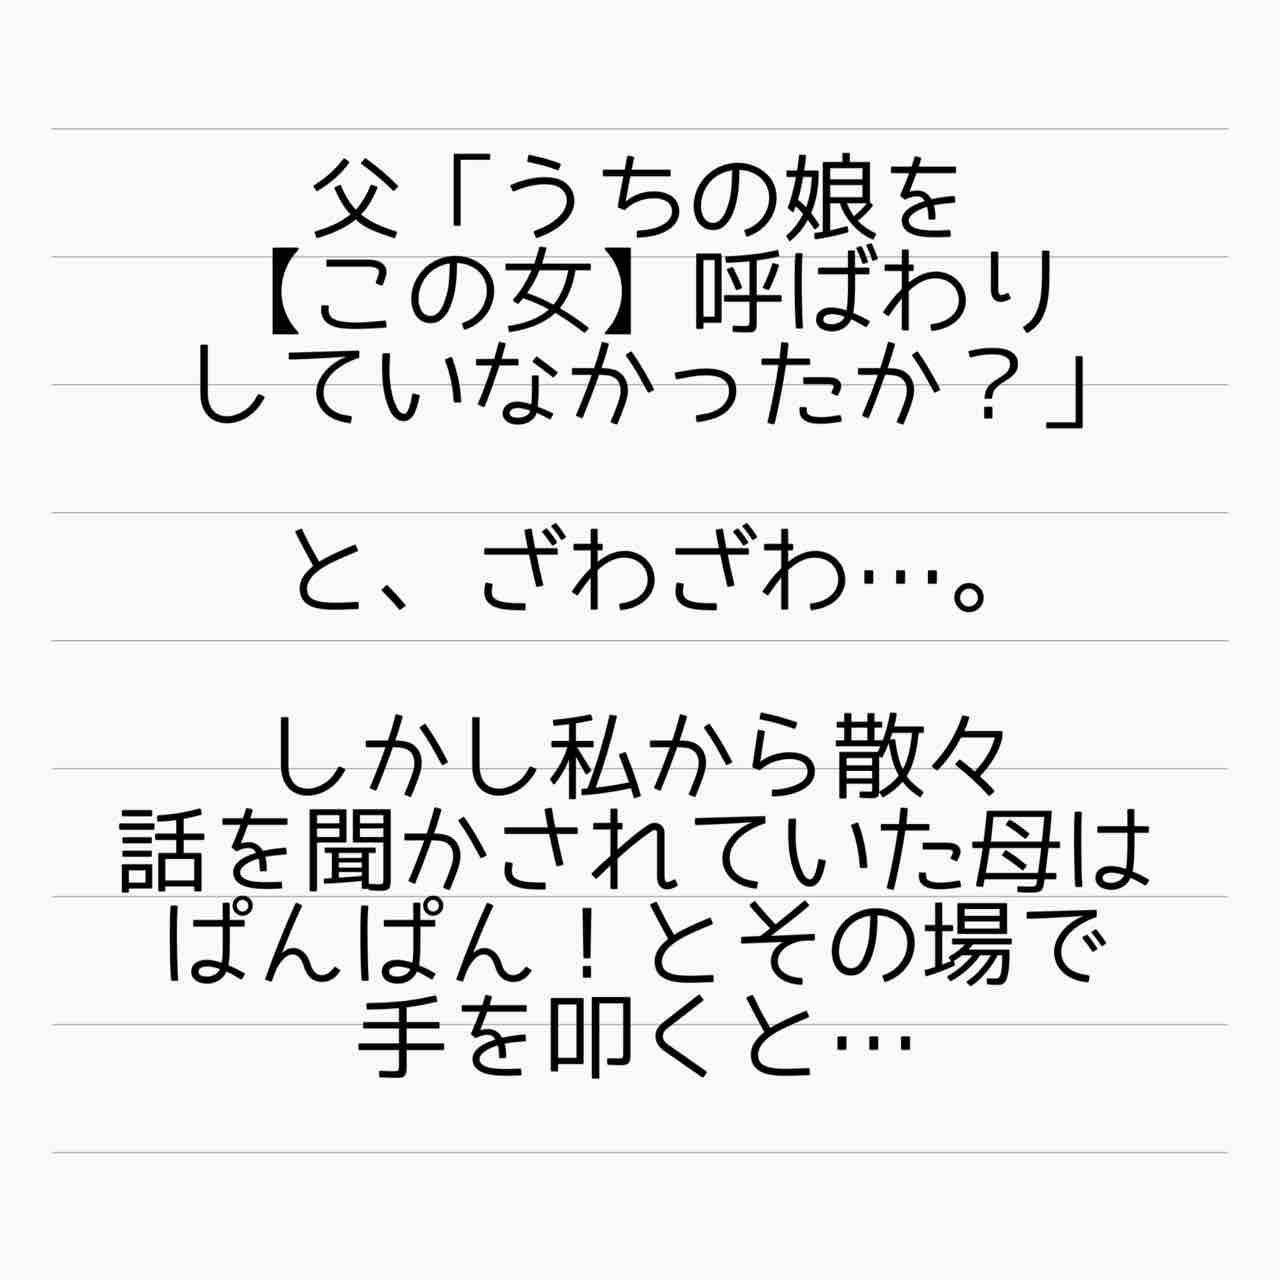 父「うちの娘を
【この女】呼ばわり
していなかったか？」
と、ざわざわ…。
しかし私から散々
話を聞かされていた母は
ぱんぱん！とその場で
手を叩くと…